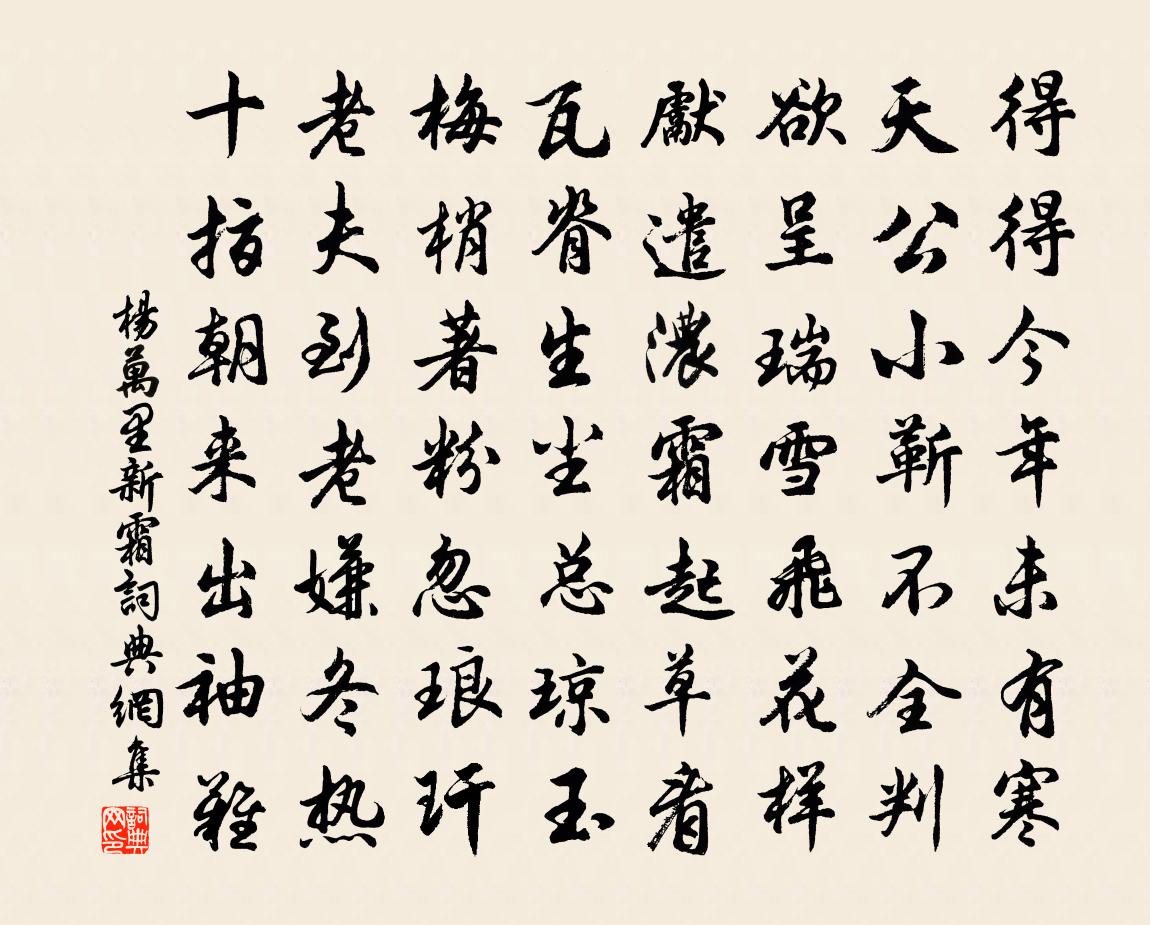 得得今年未有寒
天公小靳不全判
欲呈瑞雪飛花样
獻遣濃霜起草看
瓦脊生尘总琼玉
梅梢著粉忽琅玕
老夫到老嫌冬热
十指朝来出袖難
楊萬里新霜詞典網集
詞典网印